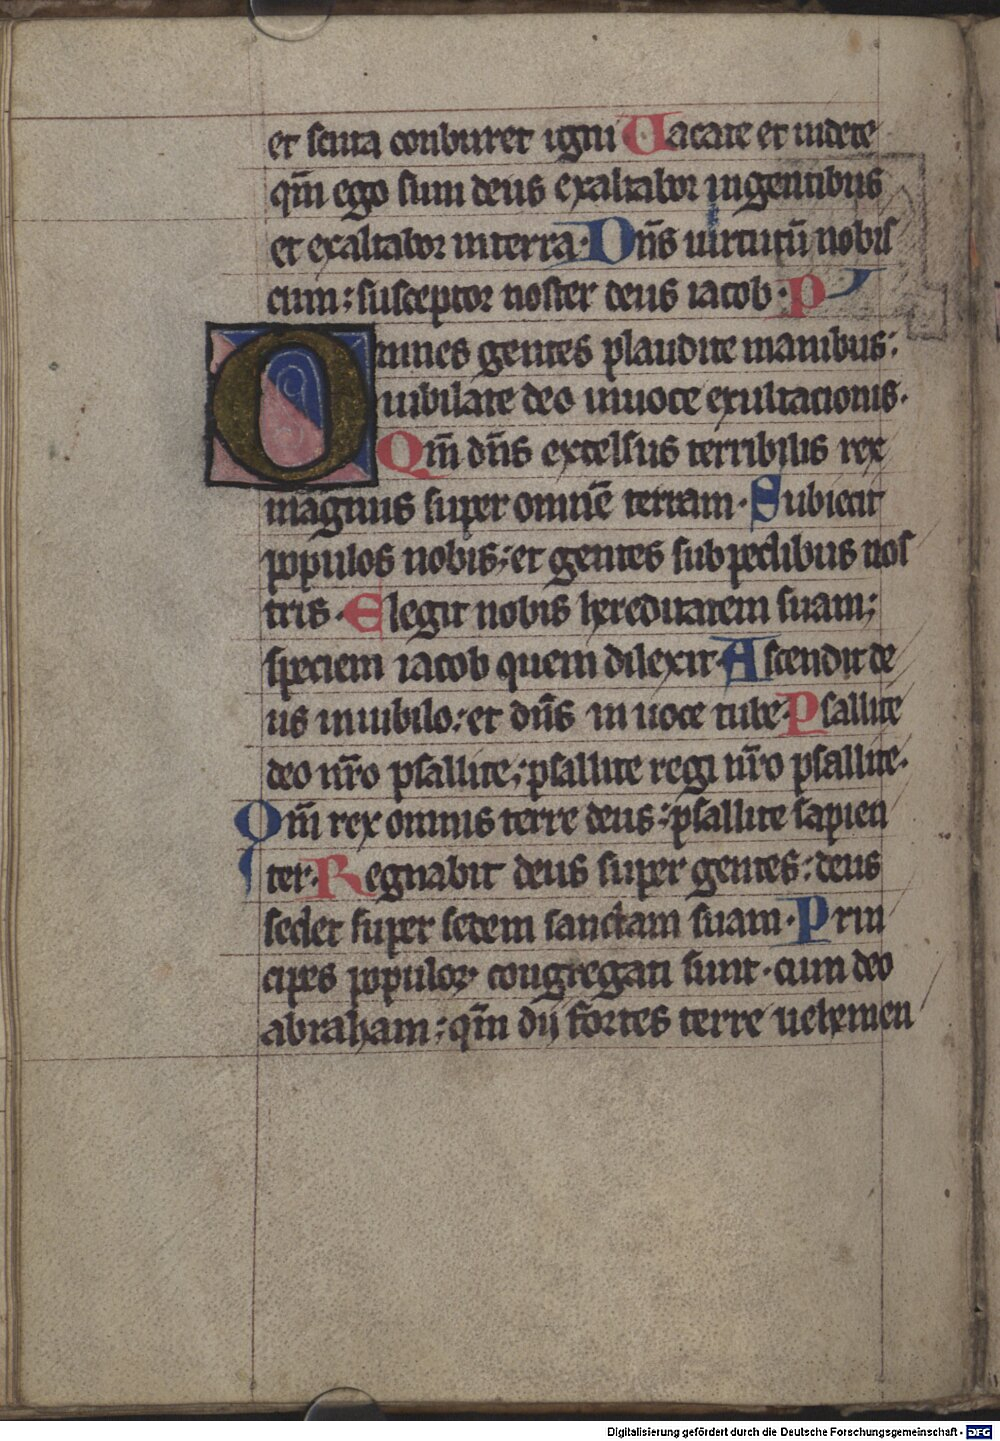 et scuta conburet igni Uacate et uidete
qm̄ ego sum deus exaltabor ingentibus
et exaltabor interra· Dn̄s uirtutū nobis
cum: susceptor noster deus iacob· p
Omnes gentes plaudite manibus:
iubilate deo inuoce exultationis.
Qm̄ dn̄s excelsus terribilis rex
magnus super omnē terram· Subiecit
populos nobis: et gentes sub pedibus nos
tris· Elegit nobis hereditatem suam:
speciem iacob quem dilexit· Ascendit de
us iniubilo: et dn̄s in uoce tube· Psallite
deo nr̄o psallite: psallite regi nr̄o psallite·
Qm̄ rex omnis terre deus: psallite sapien
ter· Regnabit deus super gentes: deus
sedet super sedem sanctam suam· Prin
cipes populoꝝ congregati sunt· cum deo
abraham: qm̄ dij fortes terre uehemen
Digitalisierung gefördert durch die Deutsche Forschungsgemeinschaft - DFG